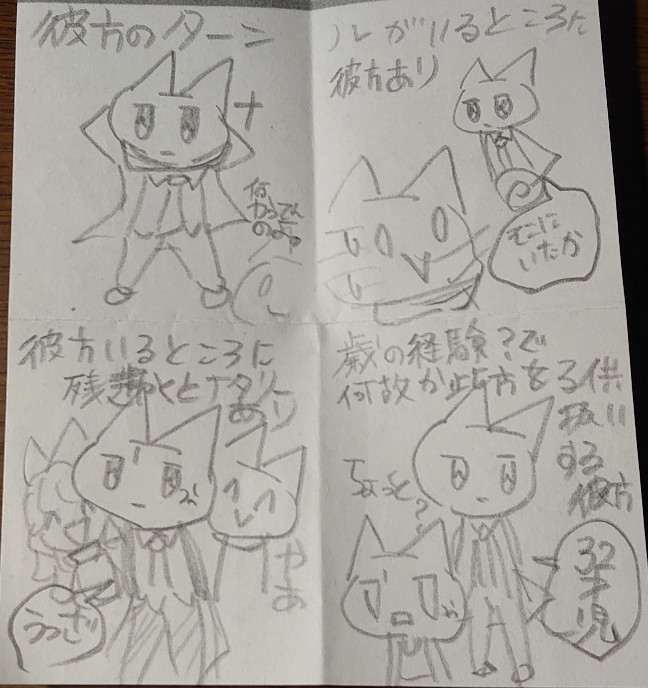 彼方のターン
何
やってん
のよ
ルがいるところに
彼方あり
そこに
いたか
彼方いるところに
あり
やあ
うっざ
歳の経験?で
何故か此方を子供
扱い
する
彼方
ちょっと?
32
才
児